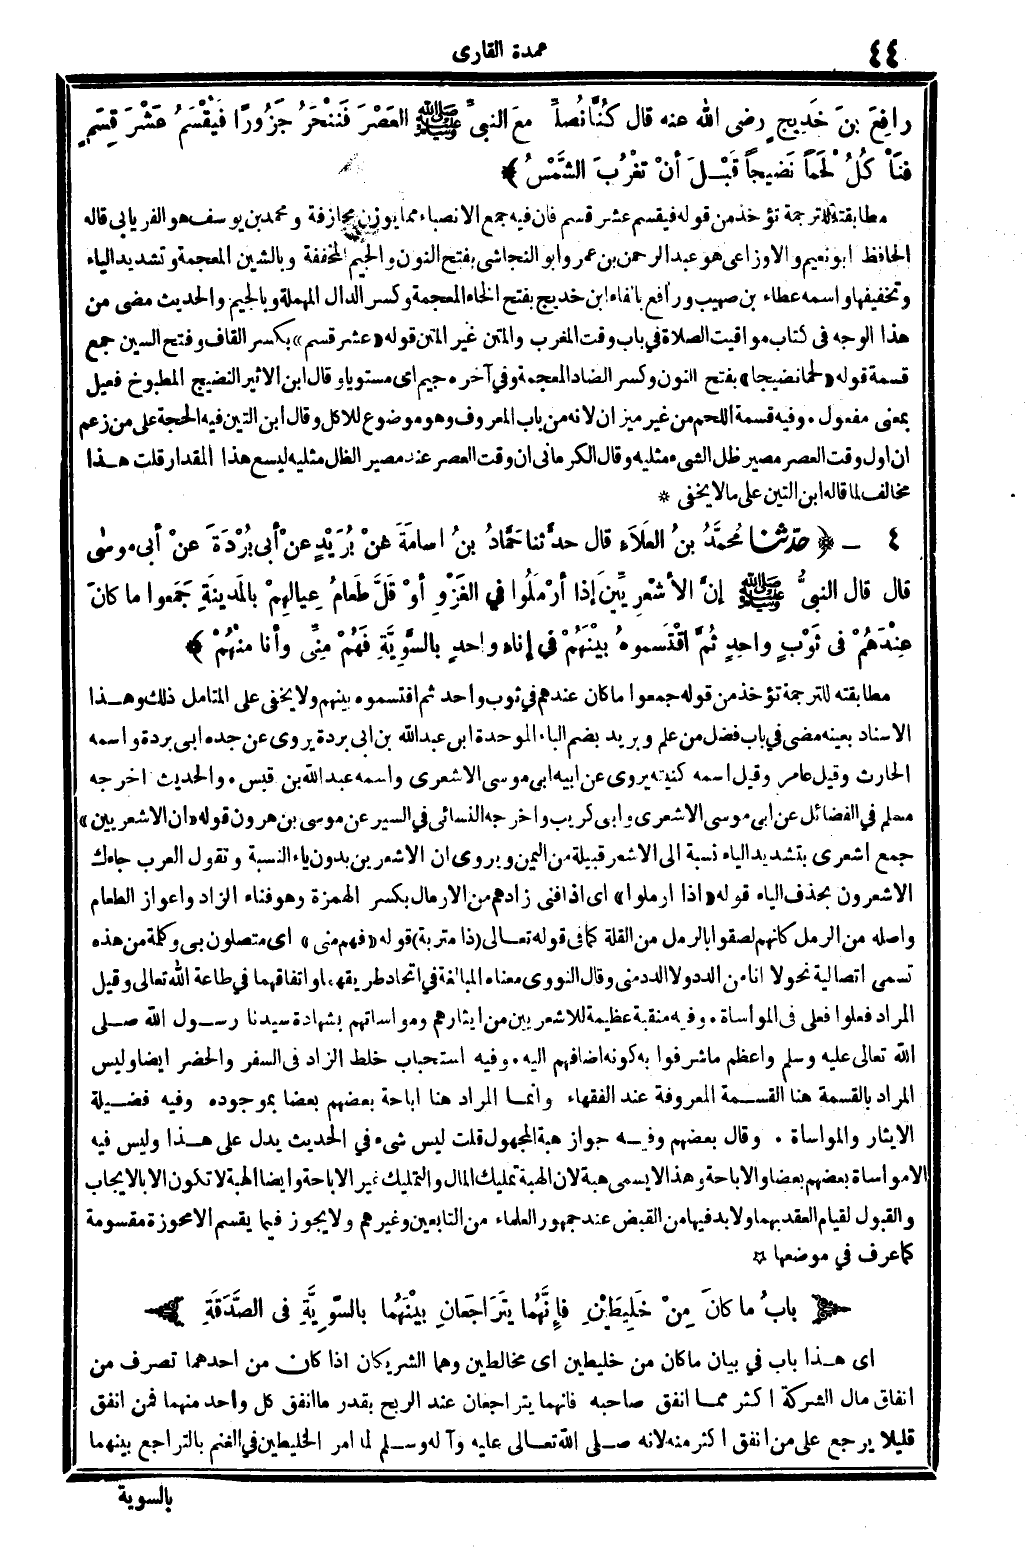 ٤٤
عمدة القارى
رافِعَ بنَ خَدِيجٍ رضى الله عنه قال كُنَّا نُصلِّى معَ النبىِّ ﷺ العَصْرَ فَننْحَرُ جَزُورًا فَيُقْسَمُ عَشْرَ قِسَمٍ
فنأْكُلُ لَحْمًا نَضيجاً قَبْـلَ أنْ تغْرُبَ الشَّمْسُ ﴾
مطابقته للترجمة تؤخذ من قوله فيقسم عشر قسم فان فيه جمع الانصباء مما يوزن مجازفة ومحمد بن يوسف هو الفريابى قاله
الحافظ ابو نعيم والاوزاعى هو عبد الرحمن بن عمر وابو النجاشى بفتح النون والجيم المخففة وبالشين المعجمة وتشديد الياء
وتخفيفها واسمه عطاء بن صهيب ورافع بالفاء ابن خديج بفتح الخاء المعجمة وكسر الدال المهملة وبالجيم والحديث مضى من
هذا الوجه فى كتاب مواقيت الصلاة فى باب وقت المغرب والمتن غير المتن قوله «عشر قسم» بكسر القاف وفتح السين جمع
قسمة قوله «لحما نضيجا» بفتح النون وكسر الضاد المعجمة وفي آخره جيم اى مستويا وقال ابن الاثير النضيج المطبوخ فعيل
بمعنى مفعول . وفيه قسمة اللحم من غير ميزان لانه من باب المعروف وهو موضوع للاكل وقال ابن التين فيه الحجة على من زعم
ان اول وقت العصر مصير ظل الشىء مثليه وقال الكرمانى ان وقت العصر عند مصير الظل مثليه ليسع هذا المقدار قلت هـذا
مخالف لما قاله ابن التين على ما لا يخفى *
٤ ـ ﴿ حدّثنا مُحمَّدُ بنُ العَلَاءِ قال حدّثنا حَمَّادُ بنُ اسامَةَ عَنْ بُرَيْدٍ عنْ أبى بُرْدَةَ عنْ أبى موسٰى
قال قال النبىُّ ﷺ إنَّ الأشْعَرِيِّينَ إذا أرْمَلُوا في الغَزْوِ أوْ قَلَّ طَعامُ عِيالِهِمْ بالمَدينَةِ جَمَعوا ما كانَ
عِنْدَهُمْ فى ثَوْبٍ واحِدٍ ثُمَّ اقْتَسموهُ بيْنَهُمْ في إناءٍ واحدٍ بالسَّوِيَّةِ فَهُمْ مِنِّى وأنا منهُمْ ﴾
مطابقته للترجمة تؤخذ من قوله جمعوا ما كان عندهم في ثوب واحد ثم اقتسموه بينهم ولا يخفى على المتامل ذلك وهـذا
الاسناد بعينه مضى في باب فضل من علم وبريد بضم الباء الموحدة ابن عبد الله بن ابى بردة يروى عن جده ابى بردة واسمه
الحارث وقيل عامر وقيل اسمه كنيته يروى عن ابيه ابى موسى الاشعرى واسمه عبد الله بن قيس . والحديث اخرجه
مسلم في الفضائل عن ابى موسى الاشعرى وابى كريب واخرجه النسائى في السير عن موسى بن هرون قوله «ان الاشعريين»
جمع اشعرى بتشديد الياء نسبة الى الاشعر قبيلة من اليمن ويروى ان الاشعرين بدون ياء النسبة وتقول العرب جاءك
الاشعرون بحذف الياء قوله «اذا ارملوا» اى اذا فنى زادهم من الارمال بكسر الهمزة وهو فناء الزاد واعواز الطعام
واصله من الرمل كانهم لصقوا بالرمل من القلة كما فى قوله تعـالى (ذا متربة) قوله «فهم منى» اى متصلون بى وكلمة من هذه
تسمى اتصالية نحو لا انا من الدد ولا الدد منى وقال النووى معناه المبالغة في اتحاد طريقهما واتفاقهما في طاعة الله تعالى وقيل
المراد فعلوا فعلى فى المواساة . وفيه منقبة عظيمة للاشعريين من ايثارهم ومواساتهم بشهادة سيدنا رسـول الله صـلى
الله تعالى عليه وسلم واعظم ما شرفوا به كونه اضافهم اليه . وفيه استحباب خلط الزاد فى السفر والحضر ايضا وليس
المراد بالقسمة هنا القسـمة المعروفة عند الفقهاء وانمـا المراد هنا اباحة بعضهم بعضا بموجوده وفيه فضـيلة
الايثار والمواساة . وقال بعضهم وفيـه جواز هبة المجهول قلت ليس شىء في الحديث يدل على هـذا وليس فيه
الا مواساة بعضهم بعضا والاباحة وهذا لا يسمى هبة لان الهبة تمليك المال والتمليك غير الاباحة وايضا الهبة لا تكون الا بالايجاب
والقبول لقيام العقد بهما ولا بد فيها من القبض عند جمهور العلماء من التابعين وغيرهم ولا يجوز فيما يقسم الا محوزة مقسومة
كما عرف في موضعها ☆
بابُ ما كانَ مِنْ خَلِيطَيْنِ فإنَّهُما يتَرَاجَعانِ بيْنَهُما بالسَّوِيَّةِ فى الصَّدَقَةِ
اى هـذا باب في بيان ما كان من خليطين اى مخالطين وهما الشريكان اذا كان من احدهما تصرف من
انفاق مال الشركة اكثر ممـا انفق صاحبه فانهما يتراجعان عند الربح بقدر ما انفق كل واحد منهما فمن انفق
قليلا يرجع على من انفق اكثر منه لانه صـلى الله تعـالى عليه وآله وسـلم لما امر الخليطين في الغنم بالتراجع بينهما
بالسوية